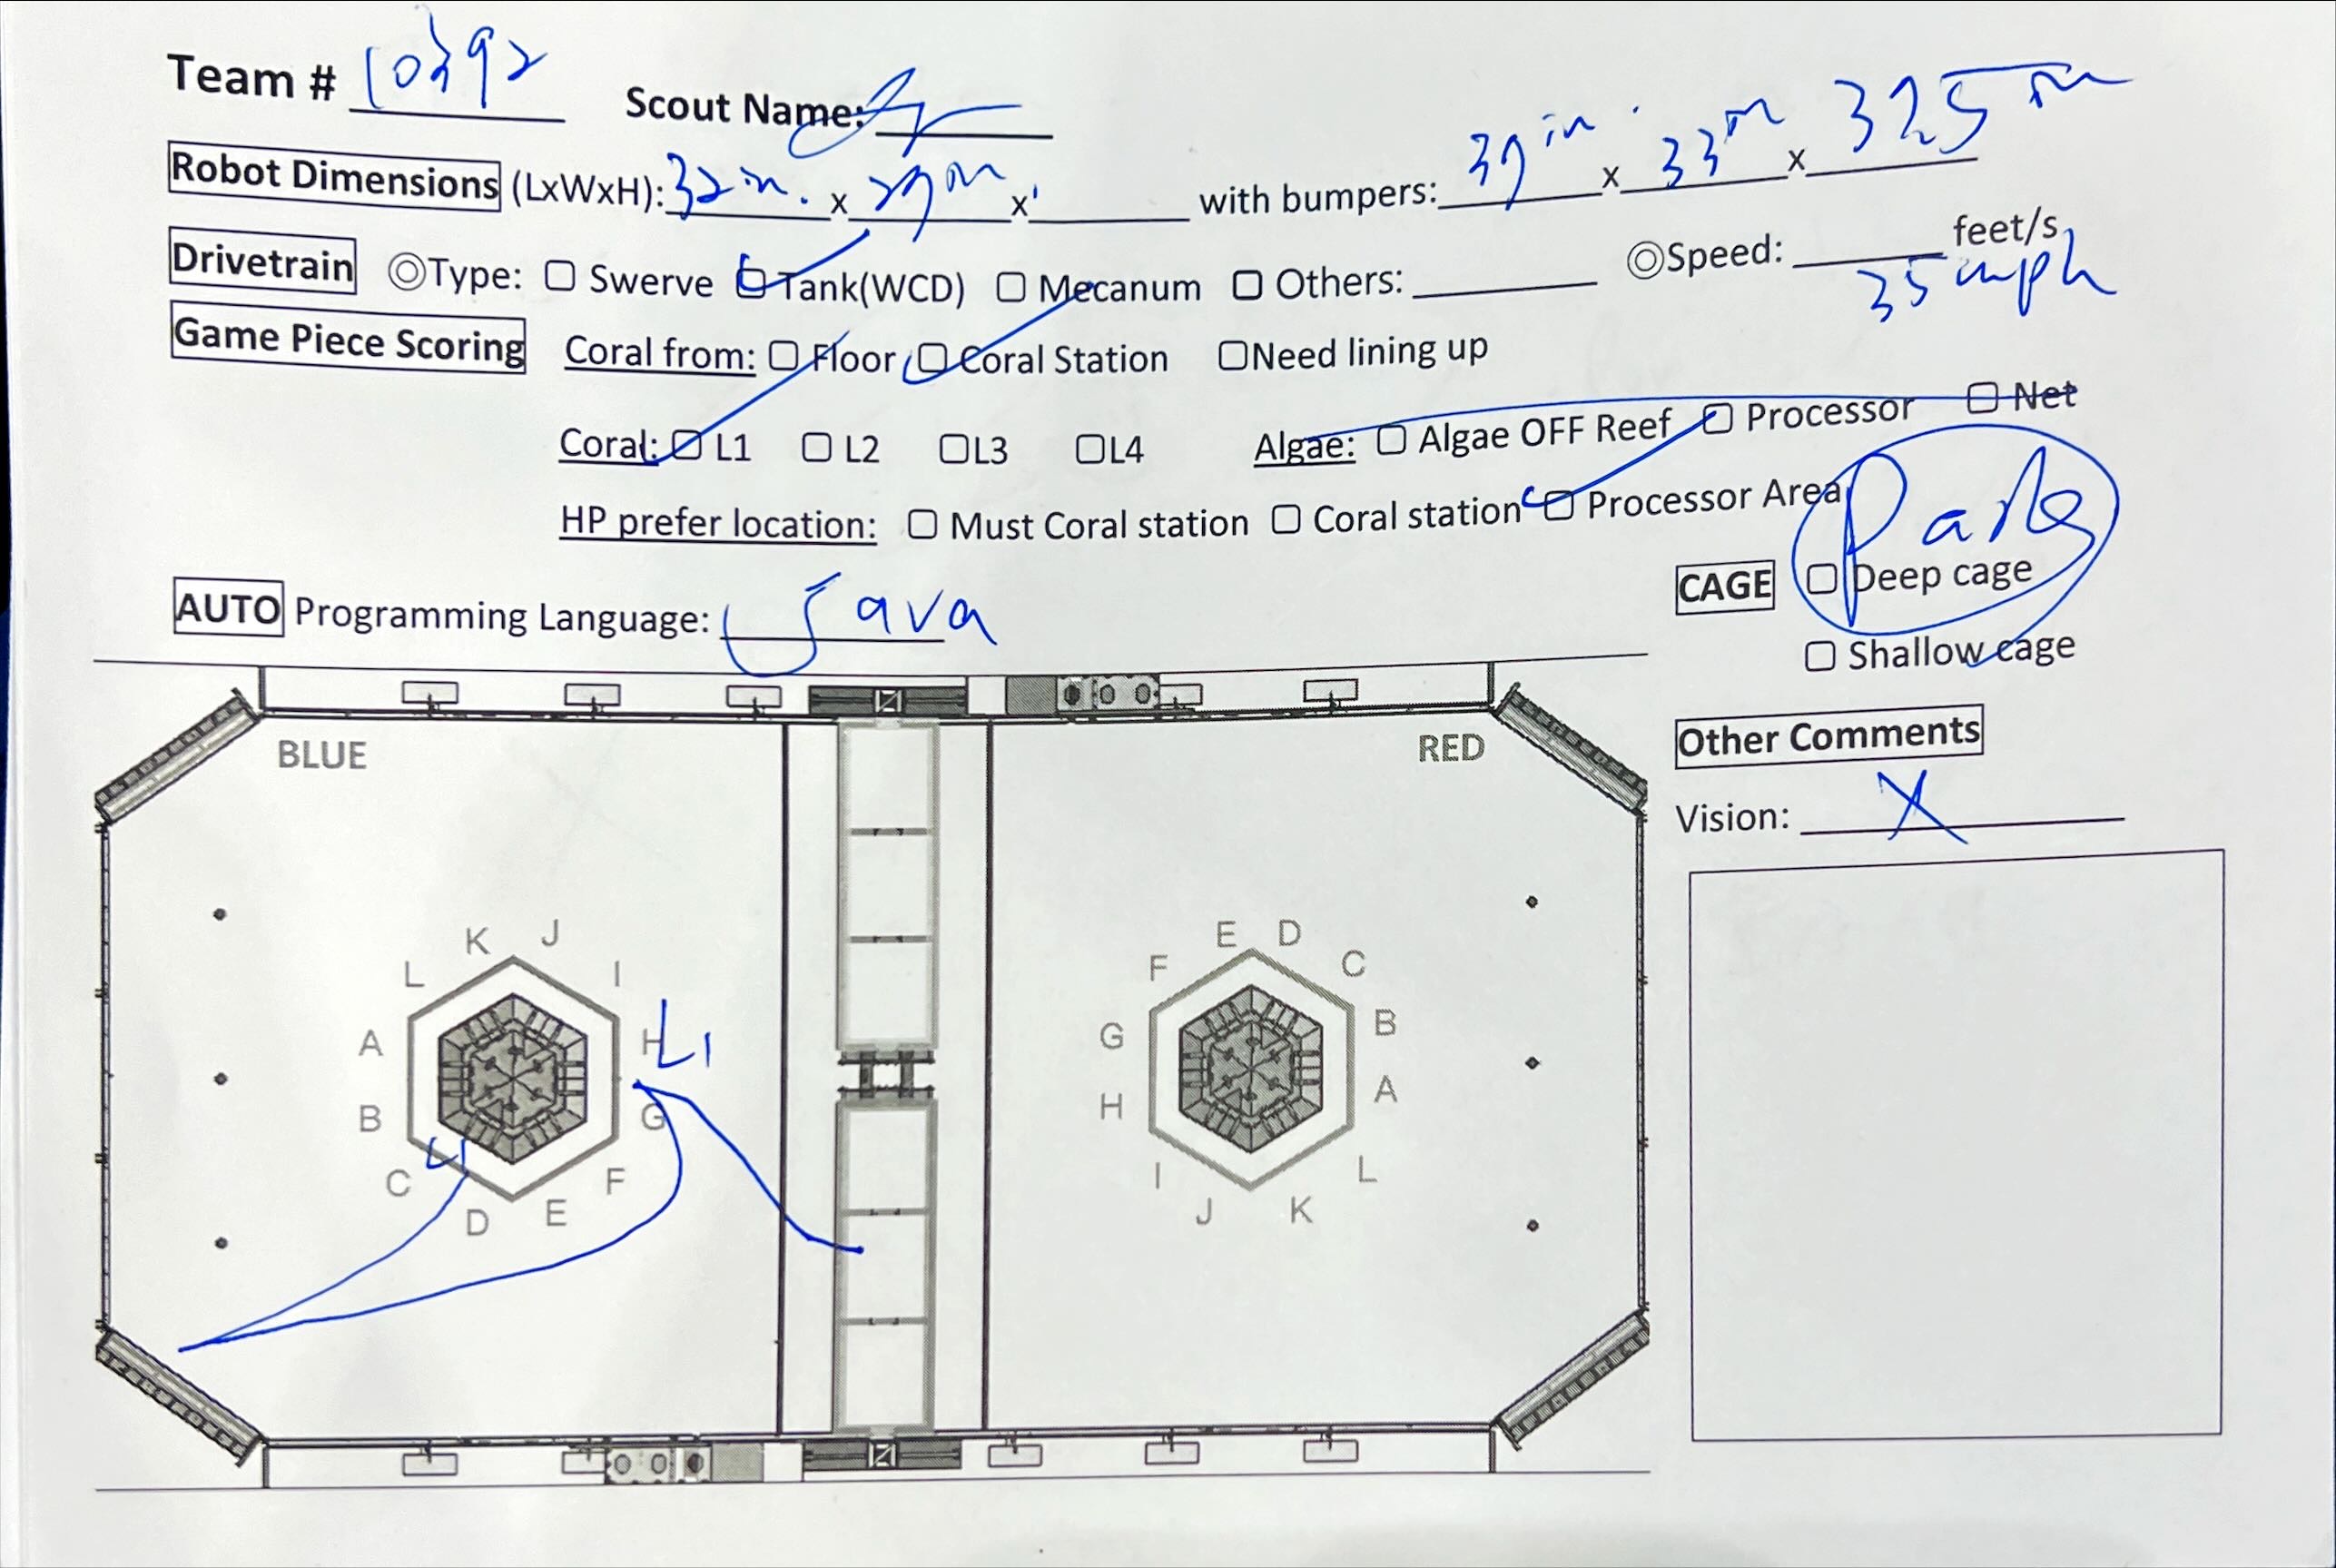 Team # 10392 Scout Name:
Robot Dimensions (LxWxH): 32 in. x 29 in x with bumpers: 39 in x 33 in x 32.5 in
Drivetrain ◎Type: ☐ Swerve ☑ Tank(WCD) ☐ Mecanum ☐ Others: ◎Speed: feet/s
35 mph
Game Piece Scoring Coral from: ☐ Floor ☑ Coral Station ☐Need lining up
Coral: ☑ L1 ☐ L2 ☐L3 ☐L4 Algae: ☐ Algae OFF Reef ☑ Processor ☐ Net
HP prefer location: ☐ Must Coral station ☐ Coral station ☑ Processor Area
Park
AUTO Programming Language: Java
CAGE ☐ Deep cage
☐ Shallow cage
BLUE RED
Other Comments
Vision: X
K J
L I
A H
B G
C F
D E
L1
L1
E D
F C
G B
H A
I L
J K